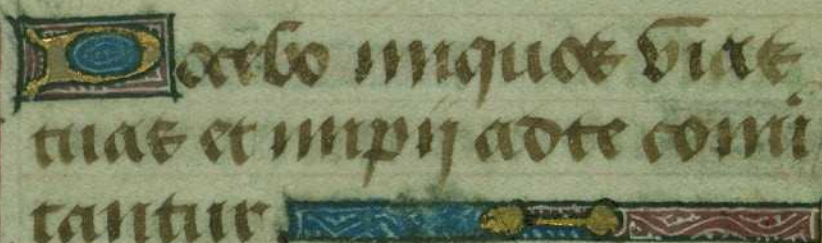 Docebo iniquos vias
tuas et impij adte conu
tantur